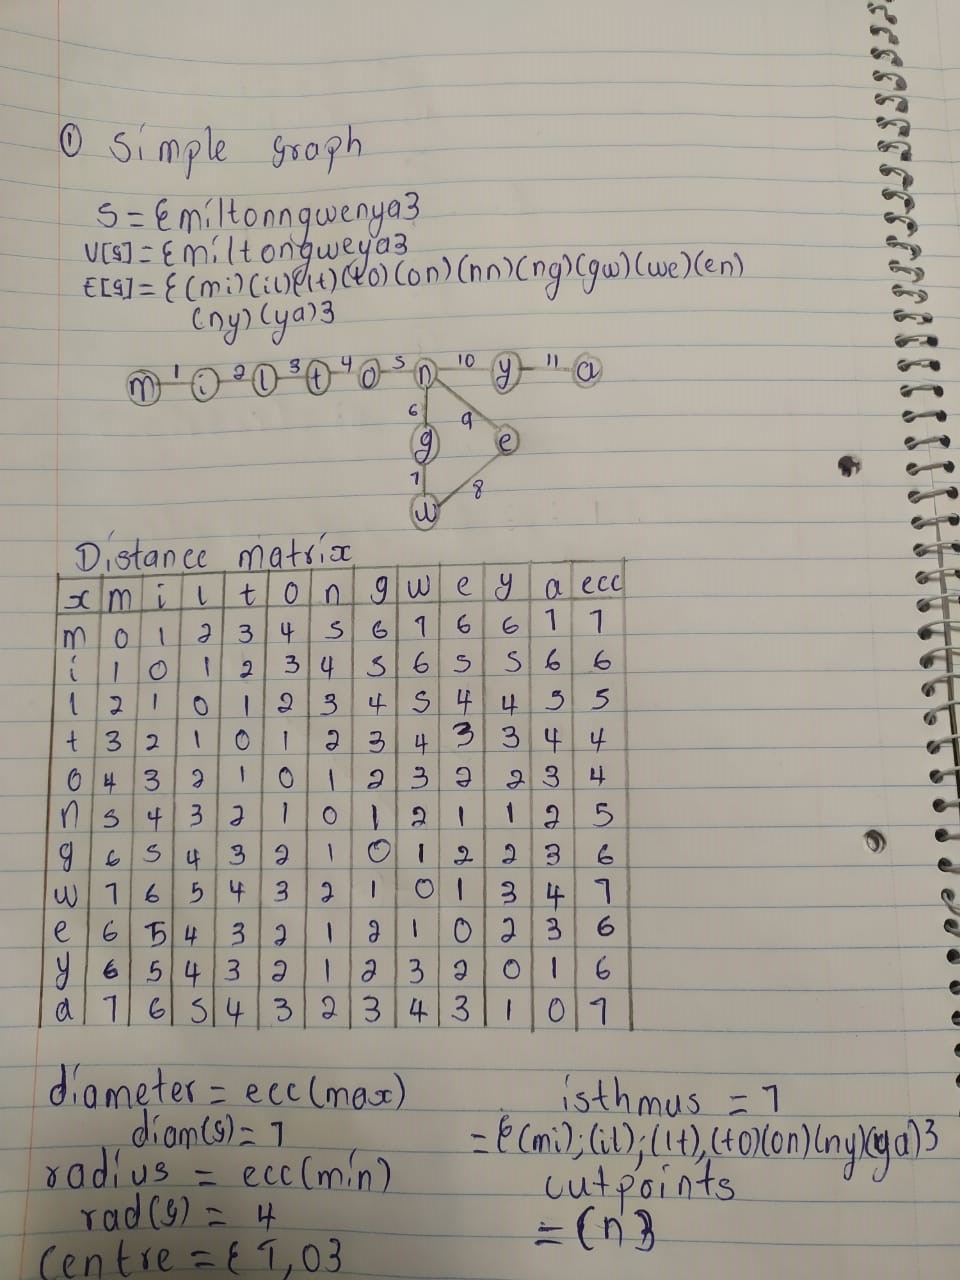 ① Simple graph
S = {miltonngwenya}
V[G] = {miltongweya}
E[G] = {(mi)(il)(lt)(to)(on)(nn)(ng)(gw)(we)(en)
(ny)(ya)}
m 1 i 2 l 3 t 4 o 5 n 10 y 11 a
6 9
g e
7 8
w
Distance matrix
x m i l t o n g w e y a ecc
m 0 1 2 3 4 5 6 7 6 6 7 7
i 1 0 1 2 3 4 5 6 5 5 6 6
l 2 1 0 1 2 3 4 5 4 4 5 5
t 3 2 1 0 1 2 3 4 3 3 4 4
o 4 3 2 1 0 1 2 3 2 2 3 4
n 5 4 3 2 1 0 1 2 1 1 2 5
g 6 5 4 3 2 1 0 1 2 2 3 6
w 7 6 5 4 3 2 1 0 1 3 4 7
e 6 5 4 3 2 1 2 1 0 2 3 6
y 6 5 4 3 2 1 2 3 2 0 1 6
a 7 6 5 4 3 2 3 4 3 1 0 7
diameter = ecc(max)
diam(G) = 7
radius = ecc(min)
rad(G) = 4
Centre = {T,O}
isthmus = 7
= {(mi);(il);(lt),(to)(on)(ny)(ya)}
cutpoints
= {n}